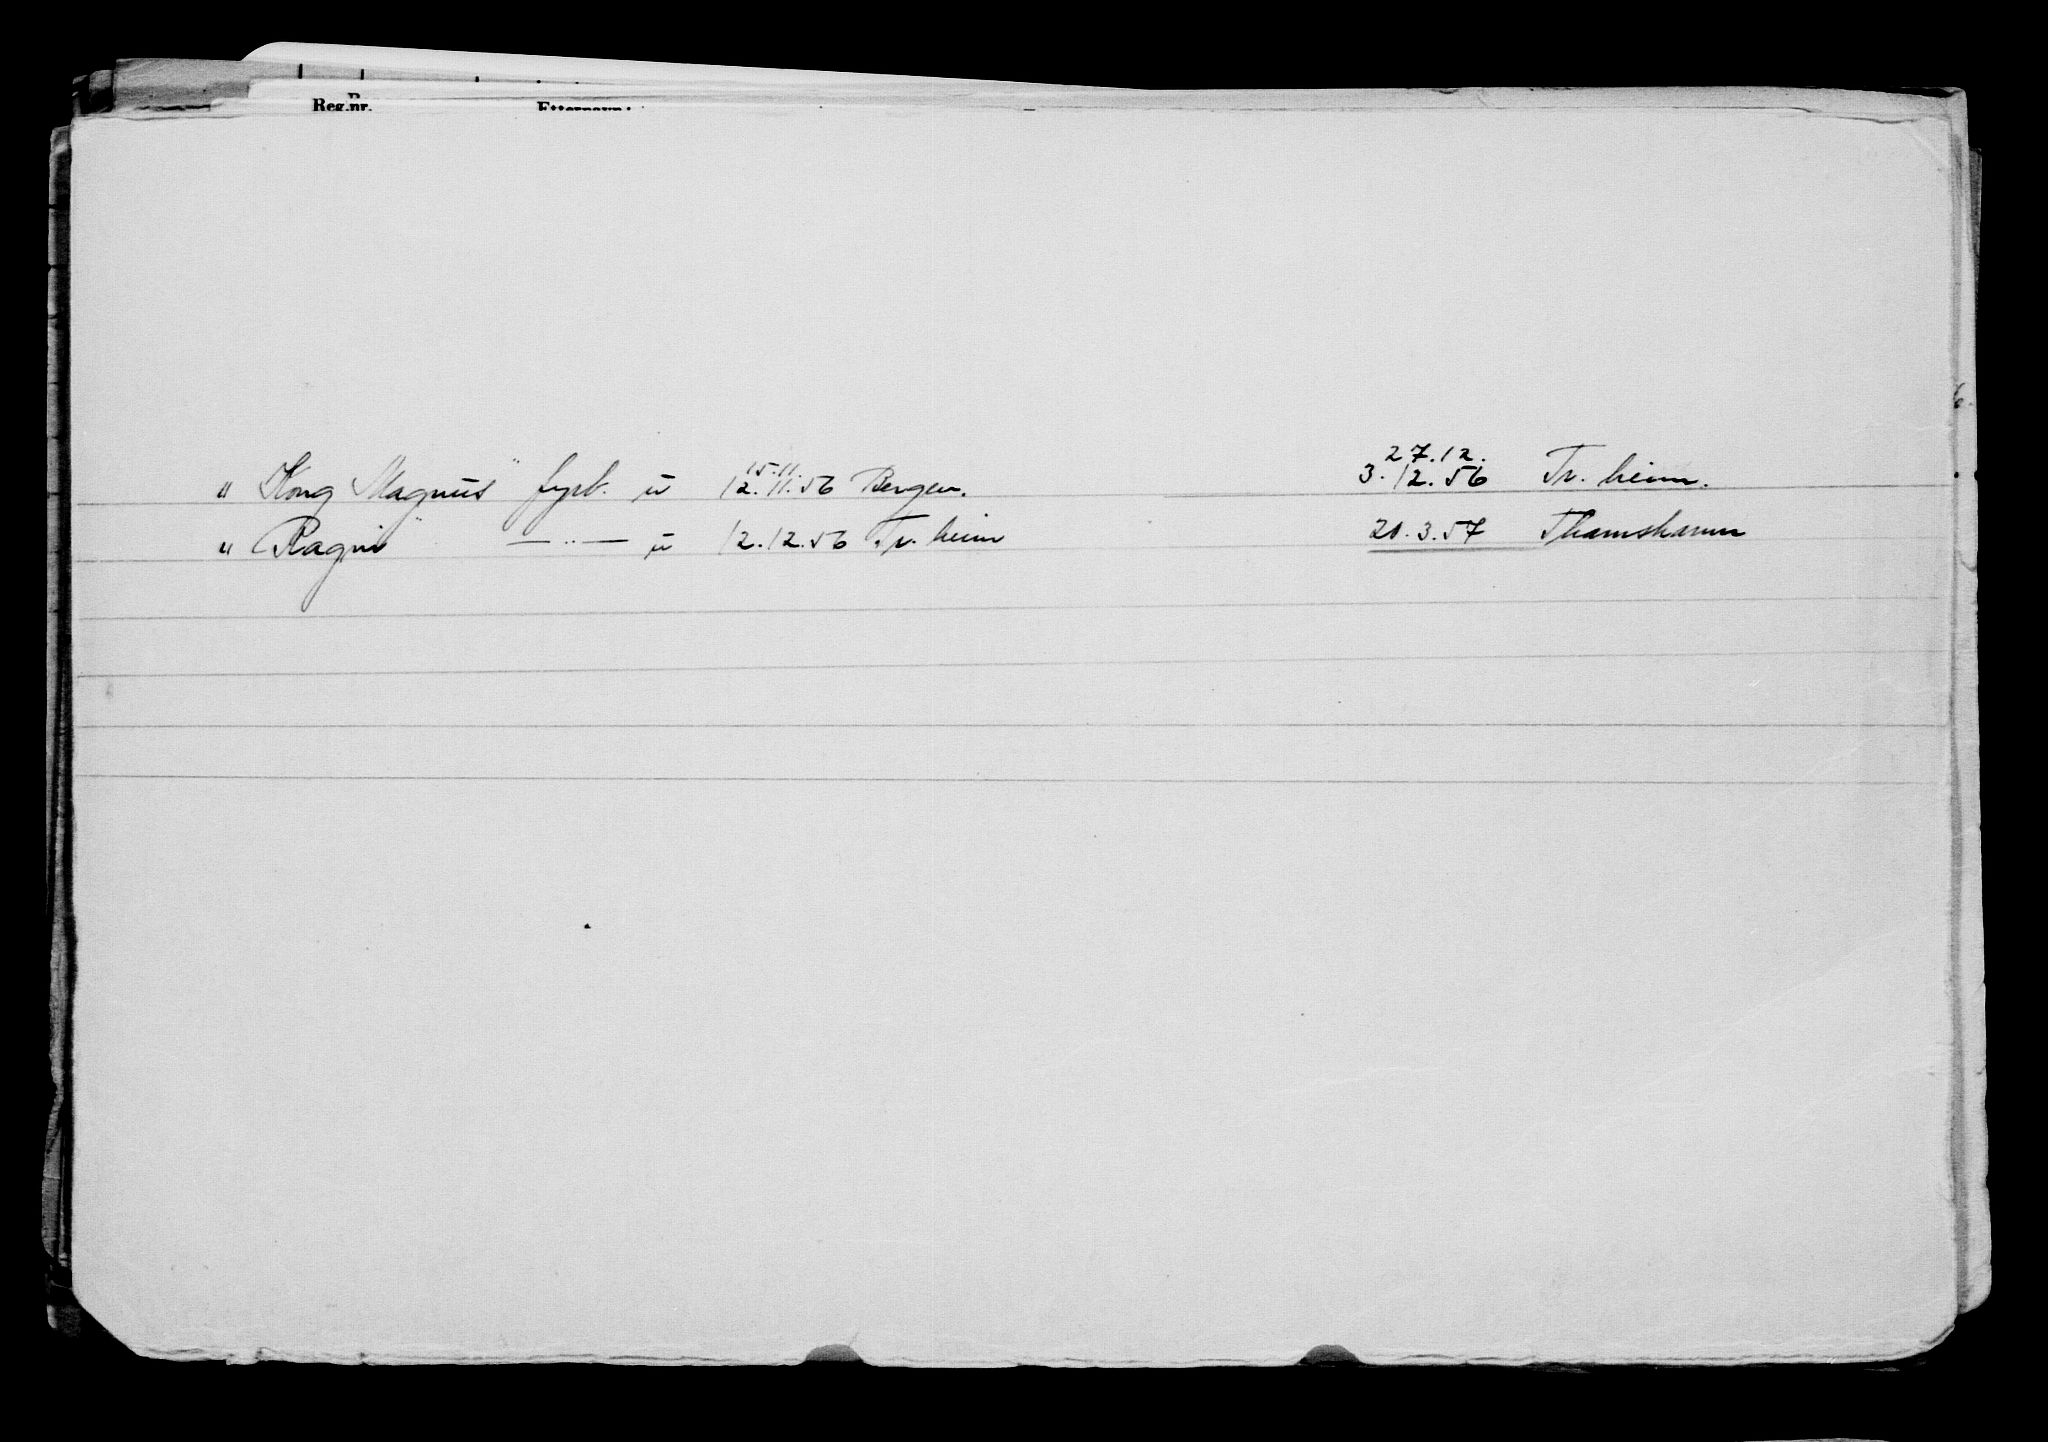 Reg.nr. Etternavn:
15.11. 27.12.
„ Kong Magnus" fyrb. u 12.11.56 Bergen. 3.12.56 Tr. heim.
„ Ragni" — „ — u 12.12.56 Tr. heim 21.3.57 Thamshamn